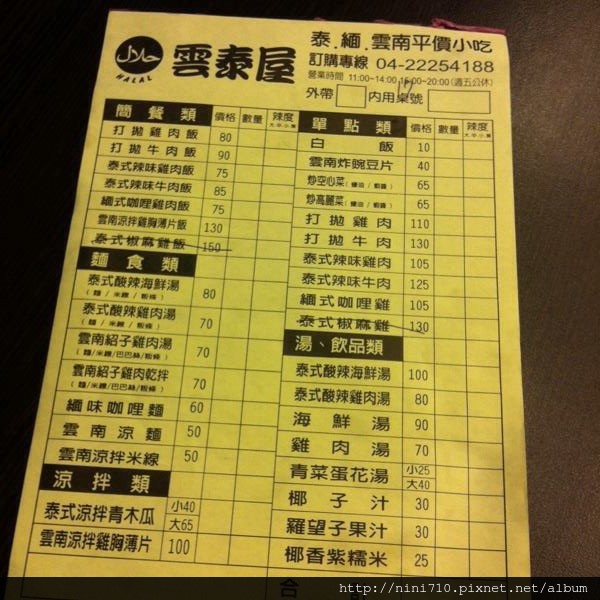 حلال
HALAL
雲泰屋
泰.緬.雲南平價小吃
訂購專線 04-22254188
營業時間 11:00~14:00 16:00~20:00(週五公休)
外帶 內用桌號
簡餐類 價格 數量 辣度 大 中 小 無
打拋雞肉飯 80
打拋牛肉飯 90
泰式辣味雞肉飯 75
泰式辣味牛肉飯 85
緬式咖哩雞肉飯 75
雲南涼拌雞胸薄片飯 130
泰式椒麻雞飯 150
麵食類
泰式酸辣海鮮湯 80
(麵/米線/粄條)
泰式酸辣雞肉湯 70
(麵/米線/粄條)
雲南紹子雞肉湯 70
(麵/米線/巴巴絲/粄條)
雲南紹子雞肉乾拌 70
(麵/米線/巴巴絲/粄條)
緬味咖哩麵 60
雲南涼麵 50
雲南涼拌米線 50
涼拌類
泰式涼拌青木瓜 小40 大65
雲南涼拌雞胸薄片 100
單點類 價格 數量 辣度 大 中 小 無
白飯 10
雲南炸豌豆片 40
炒空心菜(蠔油/蝦醬) 65
炒高麗菜(蠔油/蝦醬) 65
打拋雞肉 110
打拋牛肉 130
泰式辣味雞肉 105
泰式辣味牛肉 125
緬式咖哩雞 105
泰式椒麻雞 130
湯、飲品類
泰式酸辣海鮮湯 100
泰式酸辣雞肉湯 80
海鮮湯 90
雞肉湯 70
青菜蛋花湯 小25 大40
椰子汁 30
羅望子果汁 30
椰香紫糯米 25
合
http://nini710.pixnet.net/album